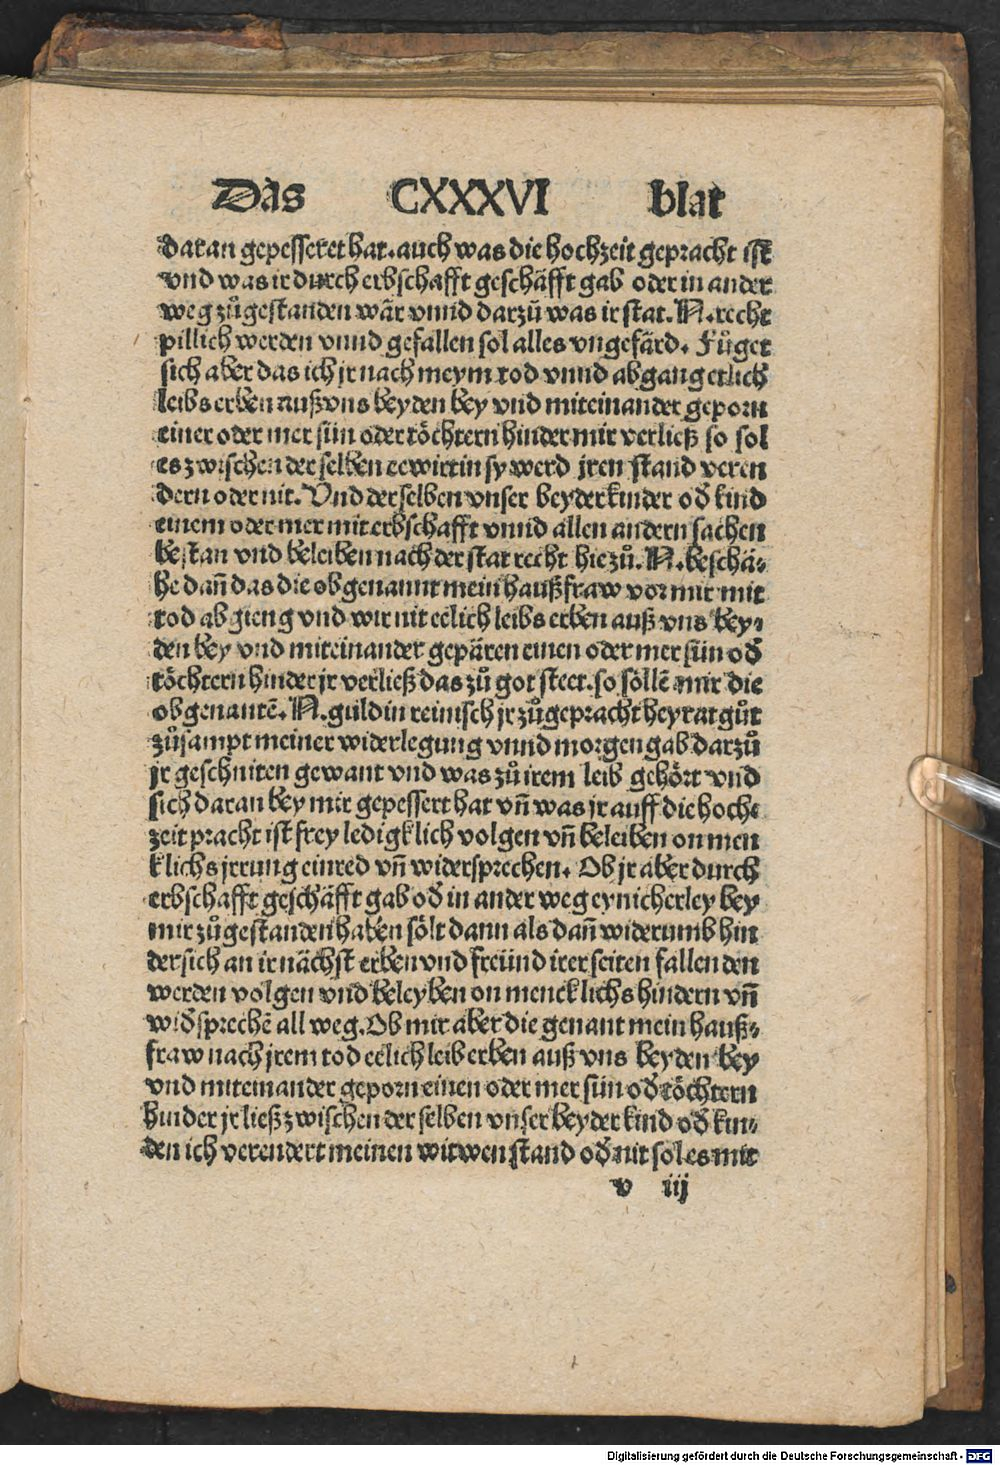 Das CXXXVI blat
daran gepesseret hat. auch was die hochzeit gepracht ist
vnd was ir durch erbschafft geschäfft gab oder in ander
weg zůgestanden wär vnnd darzů was ir stat. N. recht
pillich werden vnnd gefallen sol alles vngefärd. Fůget
sich aber das ich jr nach meym tod vnnd abgang etlich
leibs erben auß vns beyden bey vnd miteinander geporn
einer oder mer sün oder töchtern hinder mir verließ so sol
es zwischen der selben eewirtin sy werd jren stand veren
dern oder nit. Vnd der selben vnser beyder kinder od̕ kind
einem oder mer mit erbschafft vnnd allen andern sachen
bestan vnd beleiben nach der stat recht hiezů. N. beschä⸗
he dañ das die obgenannt mein haußfraw vor mir mit
tod abgieng vnd wir nit eelich leibs erben auß vns bey⸗
den bey vnd miteinander gepären einen oder mer sün od̕
töchtern hinder jr verließ das zů got steet. so söllē mir die
obgenantē. N. guldin reinisch jr zůgepracht heyratgůt
zůsampt meiner widerlegung vnnd morgengab darzů
jr geschniten gewant vnd was zů irem leib gehört vnd
sich daran bey mir gepessert hat vñ was jr auff die hoch⸗
zeit pracht ist frey ledigklich volgen vñ beleiben on men
klichs jrrung einred vñ widersprechen. Ob jr aber durch
erbschafft geschäfft gab od̕ in ander weg eynicherley bey
mir zůgestanden haben sölt dann als dañ widerumb hin
dersich an ir nächst erben vnd freünd irer seiten fallen den
werden volgen vnd beleyben on mencklichs hindern vñ
wid̕sprechē all weg. Ob mir aber die genant mein hauß⸗
fraw nach jrem tod eelich leib erben auß vns beyden bey
vnd miteinander geporn einen oder mer sün od̕ töchtern
hinder jr ließ zwischen der selben vnser beyder kind od̕ kin⸗
den ich verendert meinen witwen stand od̕ nit sol es mit
v iij
Digitalisierung gefördert durch die Deutsche Forschungsgemeinschaft - DFG